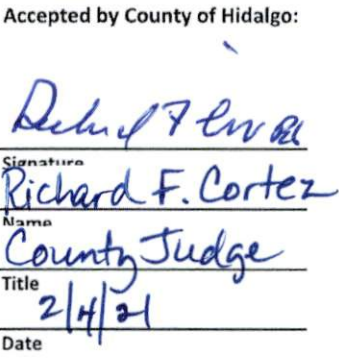 Accepted by County of Hidalgo:
Signature
Richard F. Cortez
Name
County Judge
Title
2/4/21
Date